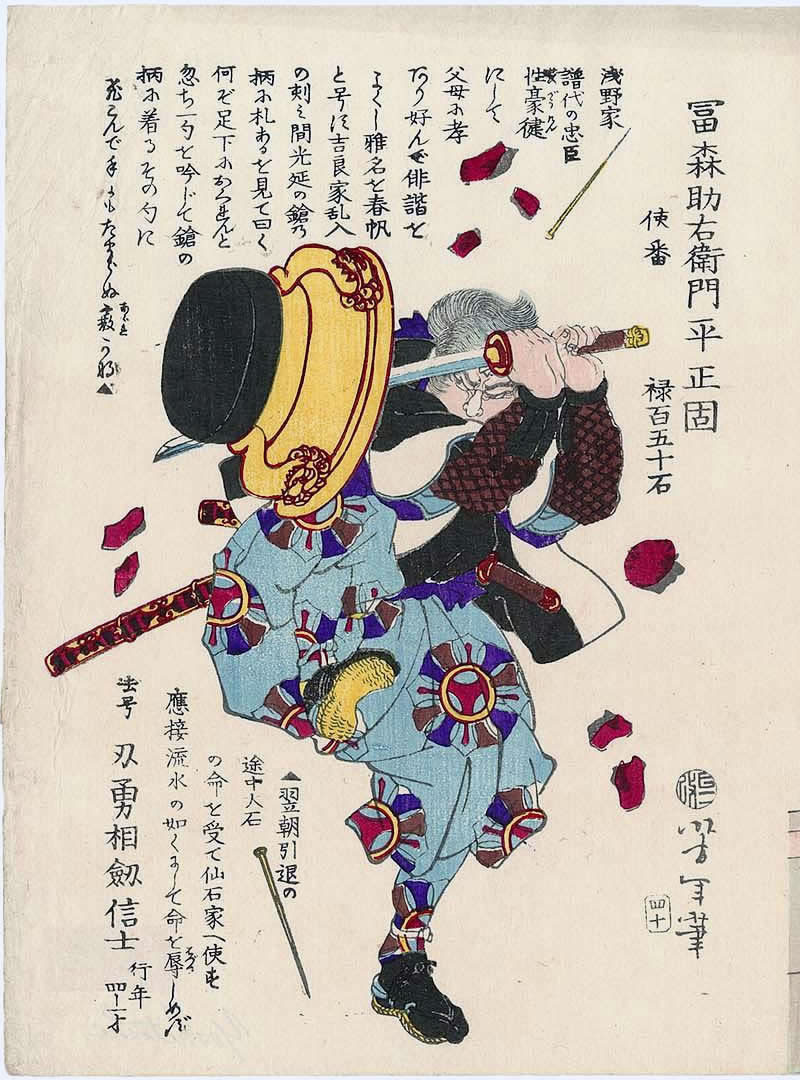 冨森助右衛門平正固
使番
禄百五十石
浅野家
譜代の忠臣
性豪健
にして
父母に孝
あり好んで俳諧を
よくし雅名を春帆
と号す吉良家乱入
の刻み間光延の鎗の
柄に札あるを見て曰く
何ぞ足下におくれんと
忽ち一句を吟じて鎗の
柄に着るその句に
飛こんで手にもたまらぬ霰かな
あられ
▲翌朝引退の
途中大石
の命を受て仙石家へ使す
應接流水の如くにして命を辱しめず
法号
刃勇相劔信士
行年
四十才
芳年筆
四十